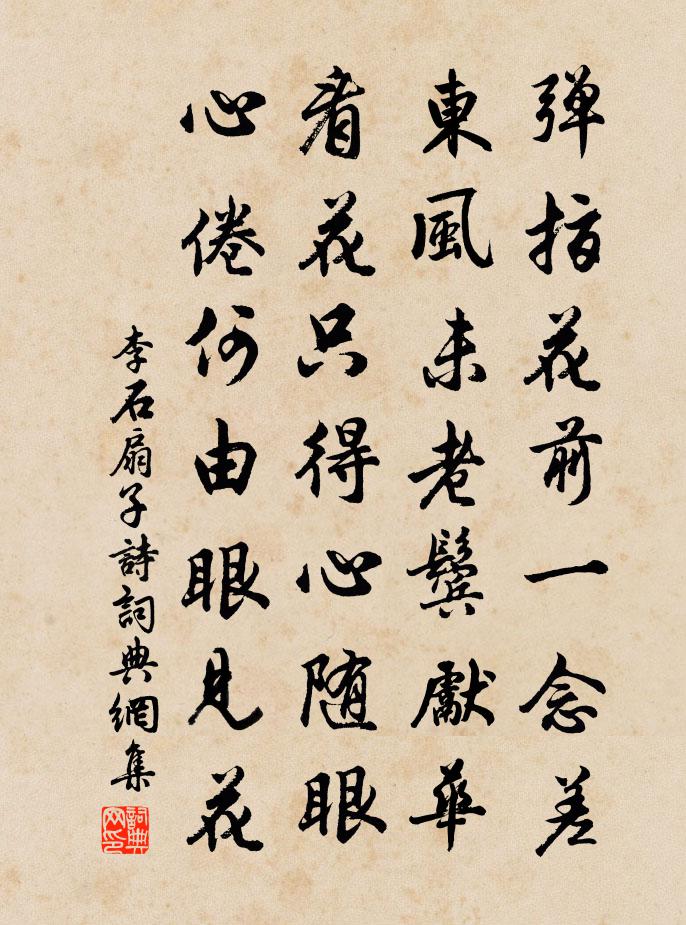 弹指花前一念差
東風未老鬓獻華
看花只得心随眼
心倦何由眼見花
李石扇子詩詞典網集
詞典网印